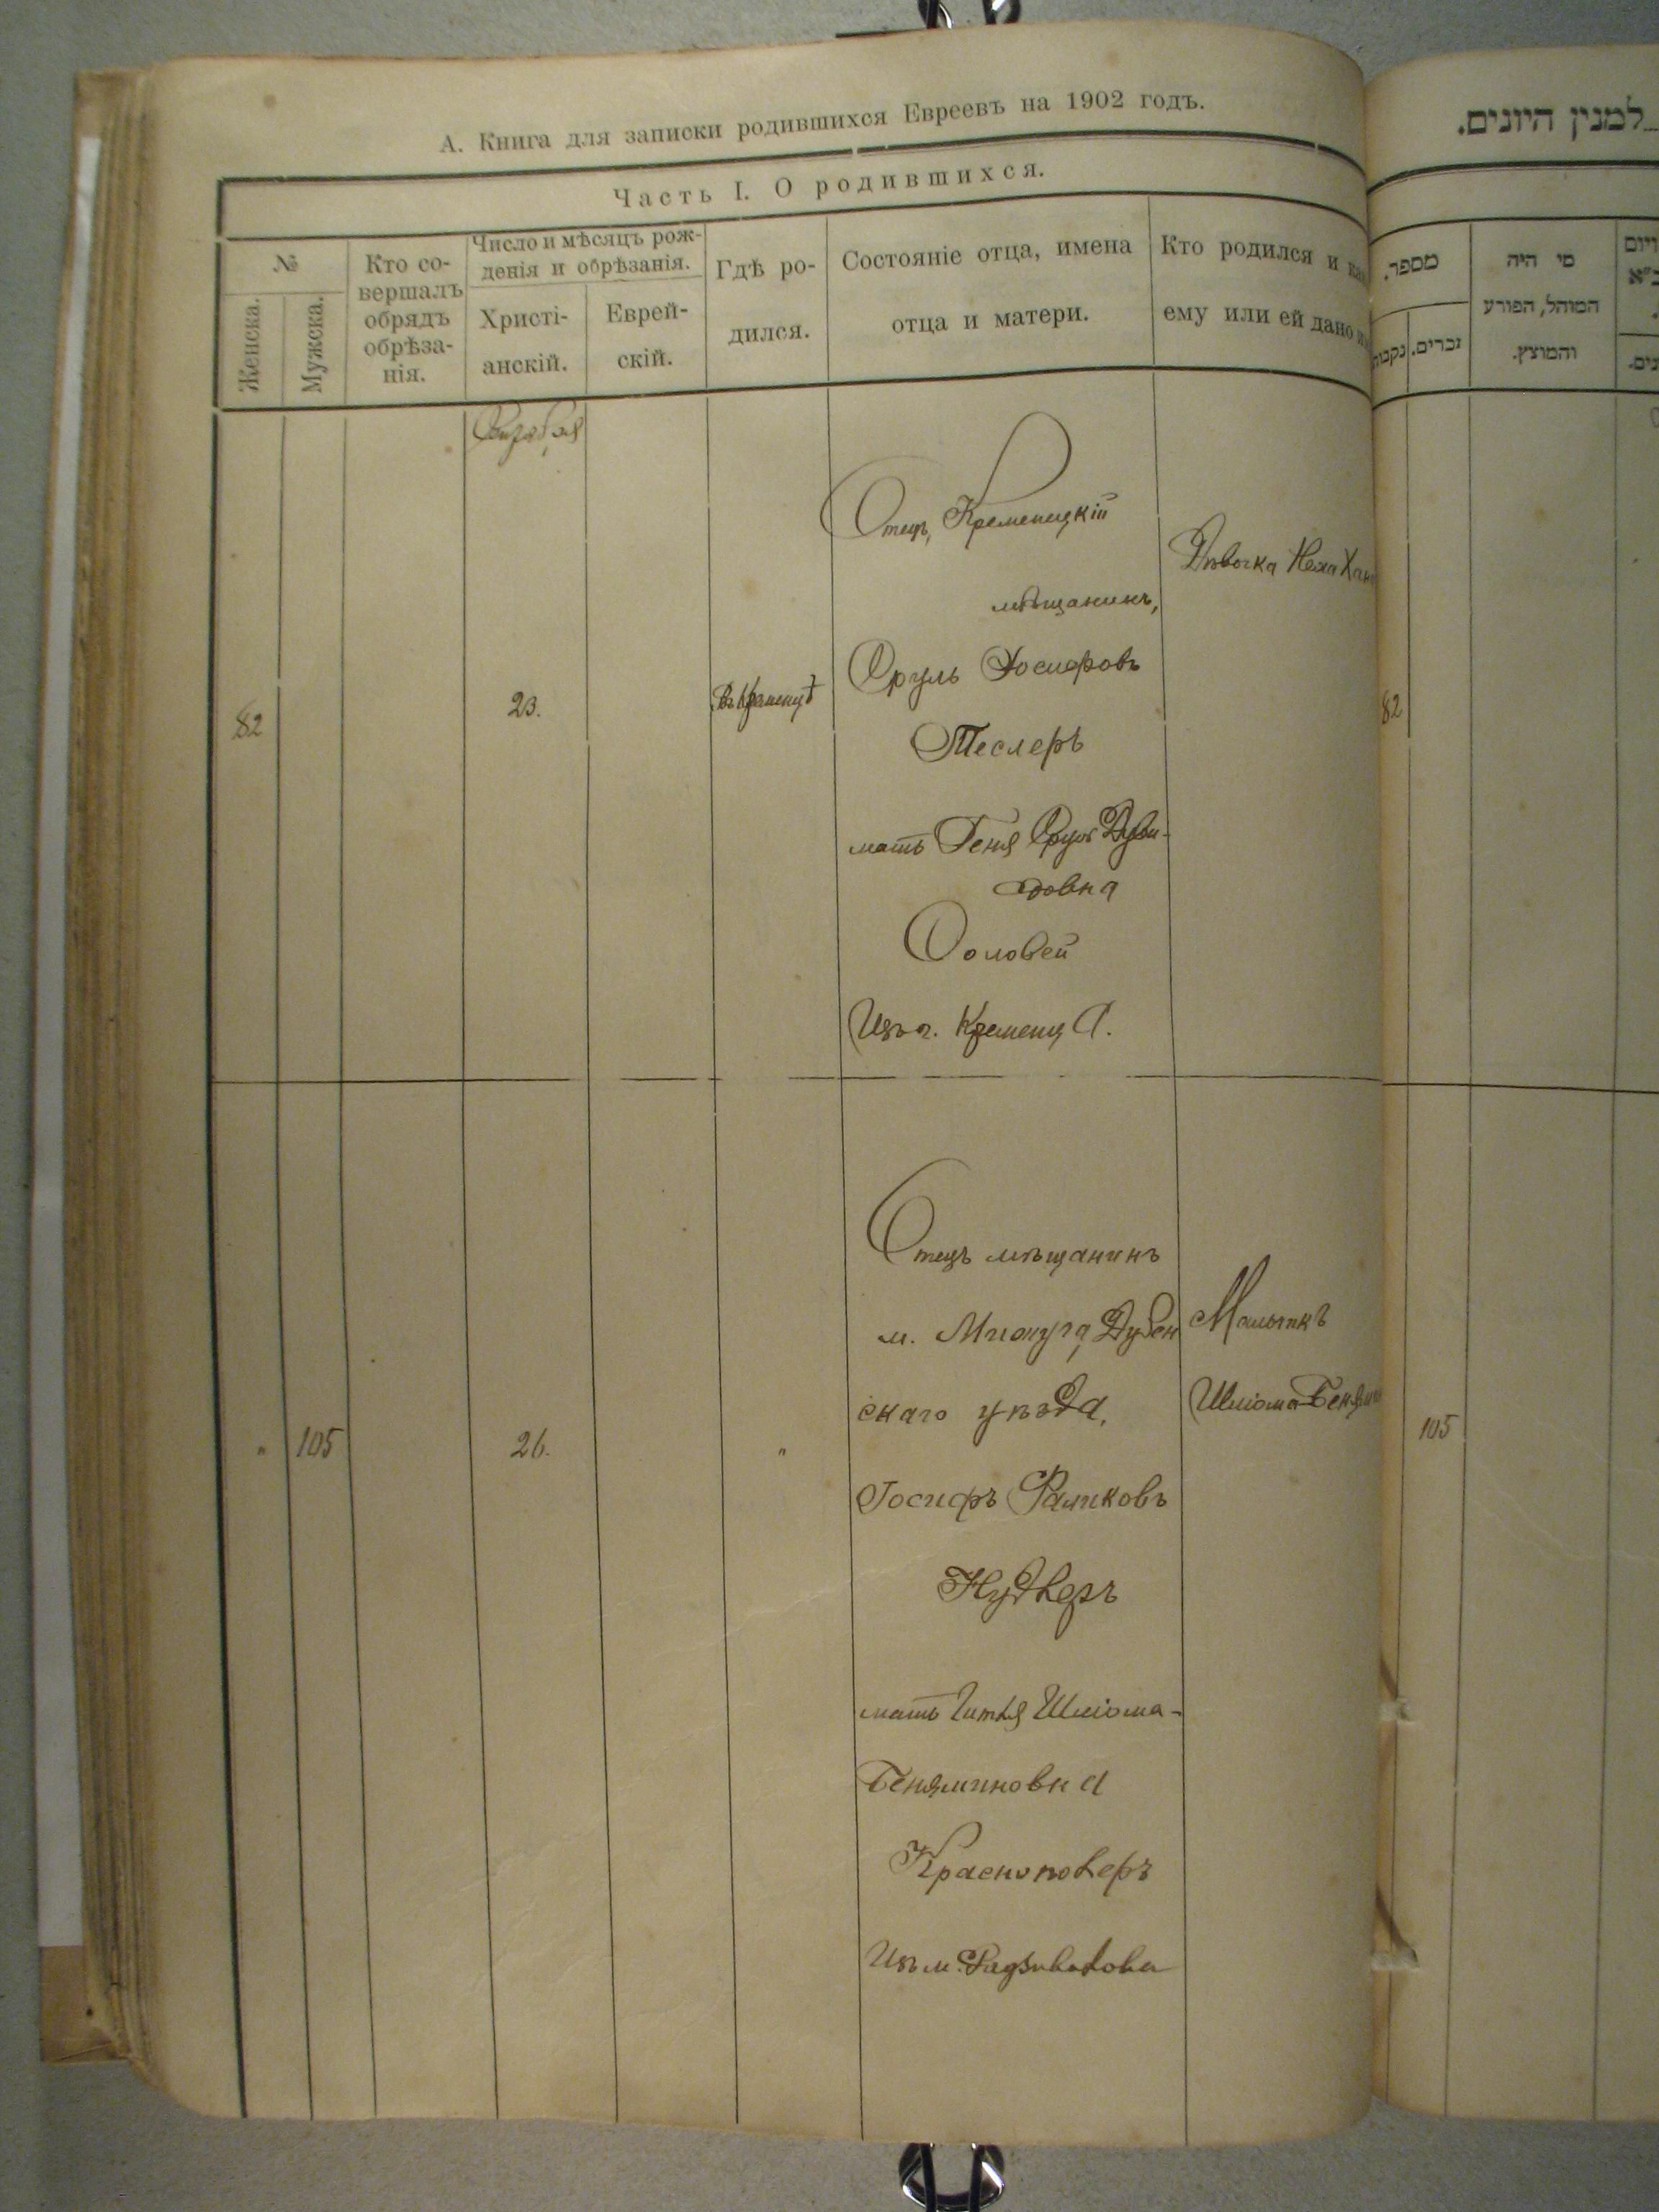 А. Книга для записки родившихся Евреевъ на 1902 годъ.
Часть I. О родившихся.
№
Женска.
Мужска.
Кто со-
вершалъ
обрядъ
обрѣза-
нія.
Число и мѣсяцъ рож-
денія и обрѣзанія.
Христі-
анскій.
Еврей-
скій.
Гдѣ ро-
дился.
Состояніе отца, имена
отца и матери.
Кто родился и
ему или ей дано
82
23.
Въ Кременцѣ
Отецъ, Кременецкій
мѣщанинъ,
Сруль Іосифовъ
Теслеръ
мать Геня
довна
Соловей
Изъ г. Кременца.
Дѣвочка
" 105
26.
"
Отецъ мѣщанинъ
м. Дубен
скаго уѣзда,
Іосифъ
Нудлеръ
мать Шліома-
Беняминовна
Изъ м. Радзивилова
Мальчикъ
Шліома-Бенями
למנין היונים.
מספר.
זכרים.
מי היה
המוהל, הפורע
והמוצץ.
82
105